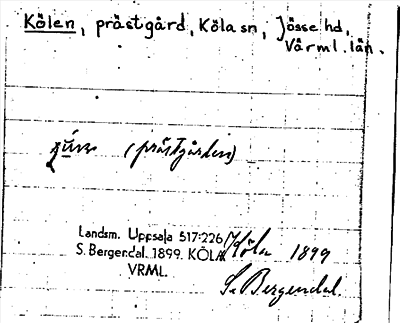 Kölen, prästgård, Köla sn, Jösse hd,
Värml. län.
(prästgården)
Landsm. Uppsala 517:226
S. Bergendal. 1899. KÖLA
VRML.
Köla 1899
S. Bergendal.